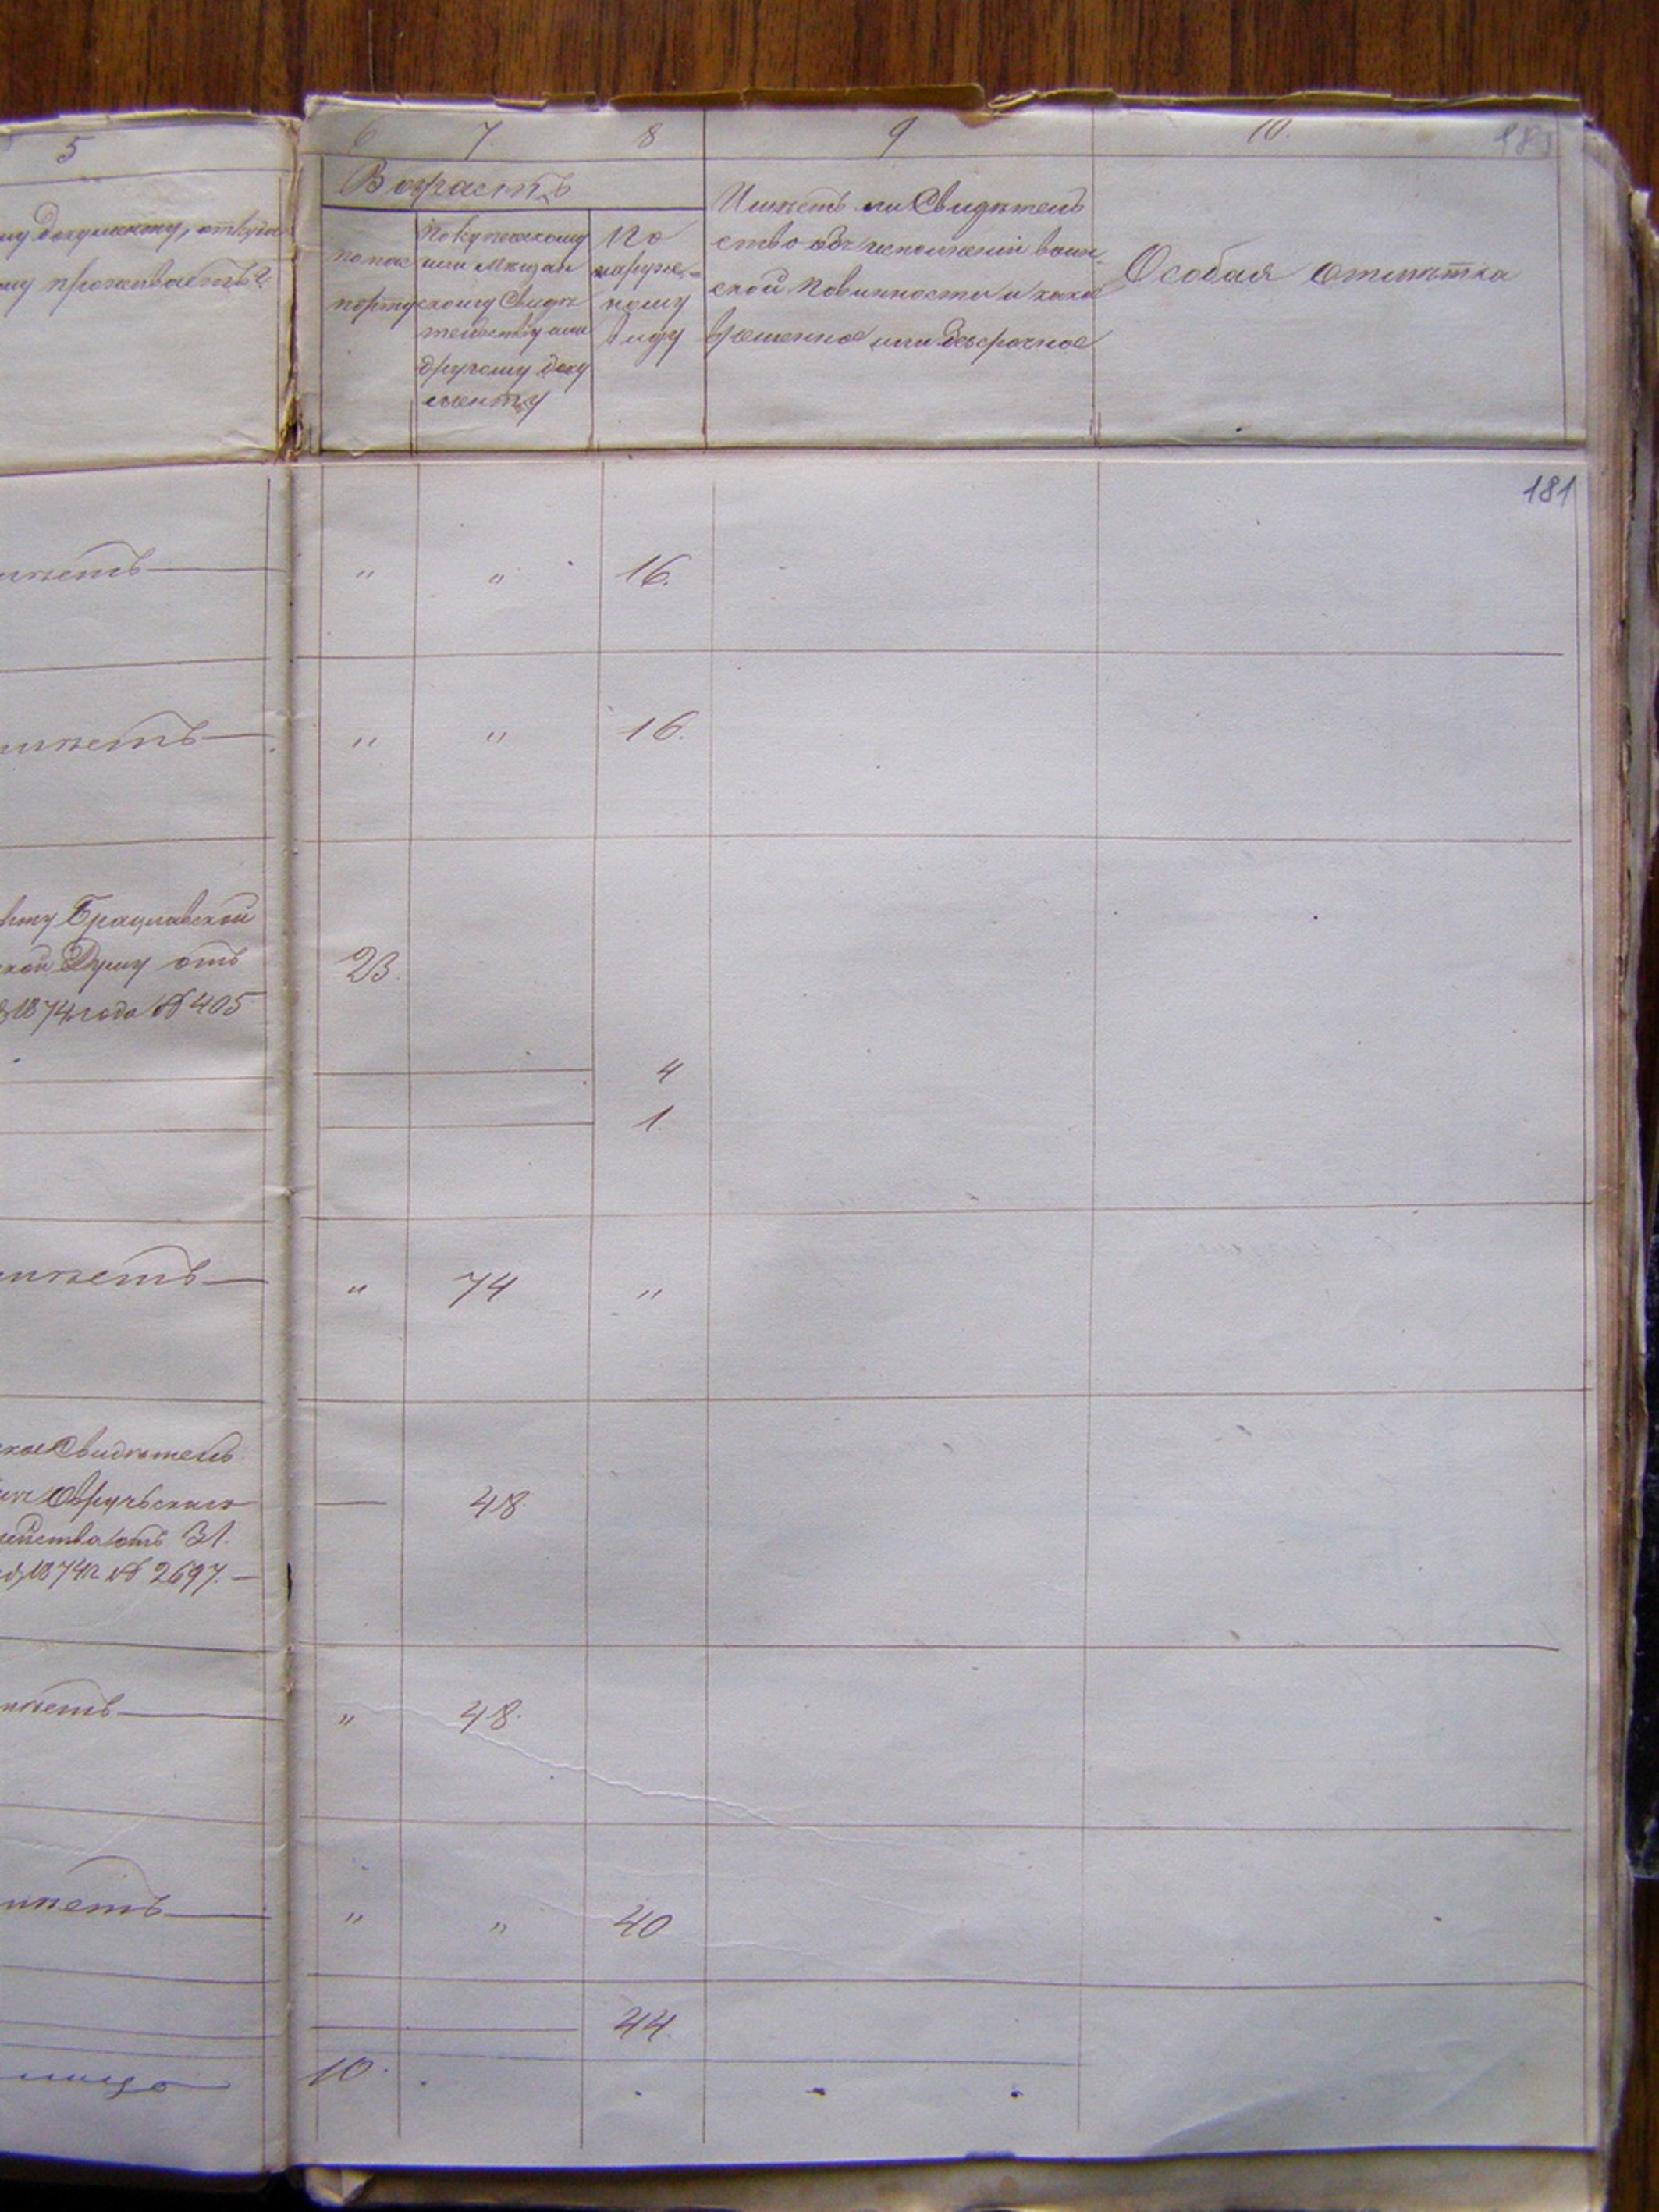 5 6 7. 8 9 10.
Возрастъ
документу, откуда
проживаетъ?
по пас
порту
по купеческому
или мѣщан
скому Свидѣ
тельству или
другому доку
менту
По
наруж-
ному
виду
Имѣетъ ли Свидѣтель
ство объ исполненіи воин-
ской повинности и какое
временное или безсрочное
Особая отмѣтка
181
имѣетъ — " " 16.
имѣетъ — " " 16.
Брацлавской
Думы отъ 23.
1874 года № 405
4
1.
имѣетъ — " 74 "
Свидѣтель
Овручьскаго — 48
отъ 31.
1874 г № 2697. —
имѣетъ — " 48.
имѣетъ — " " 40
44.
10.